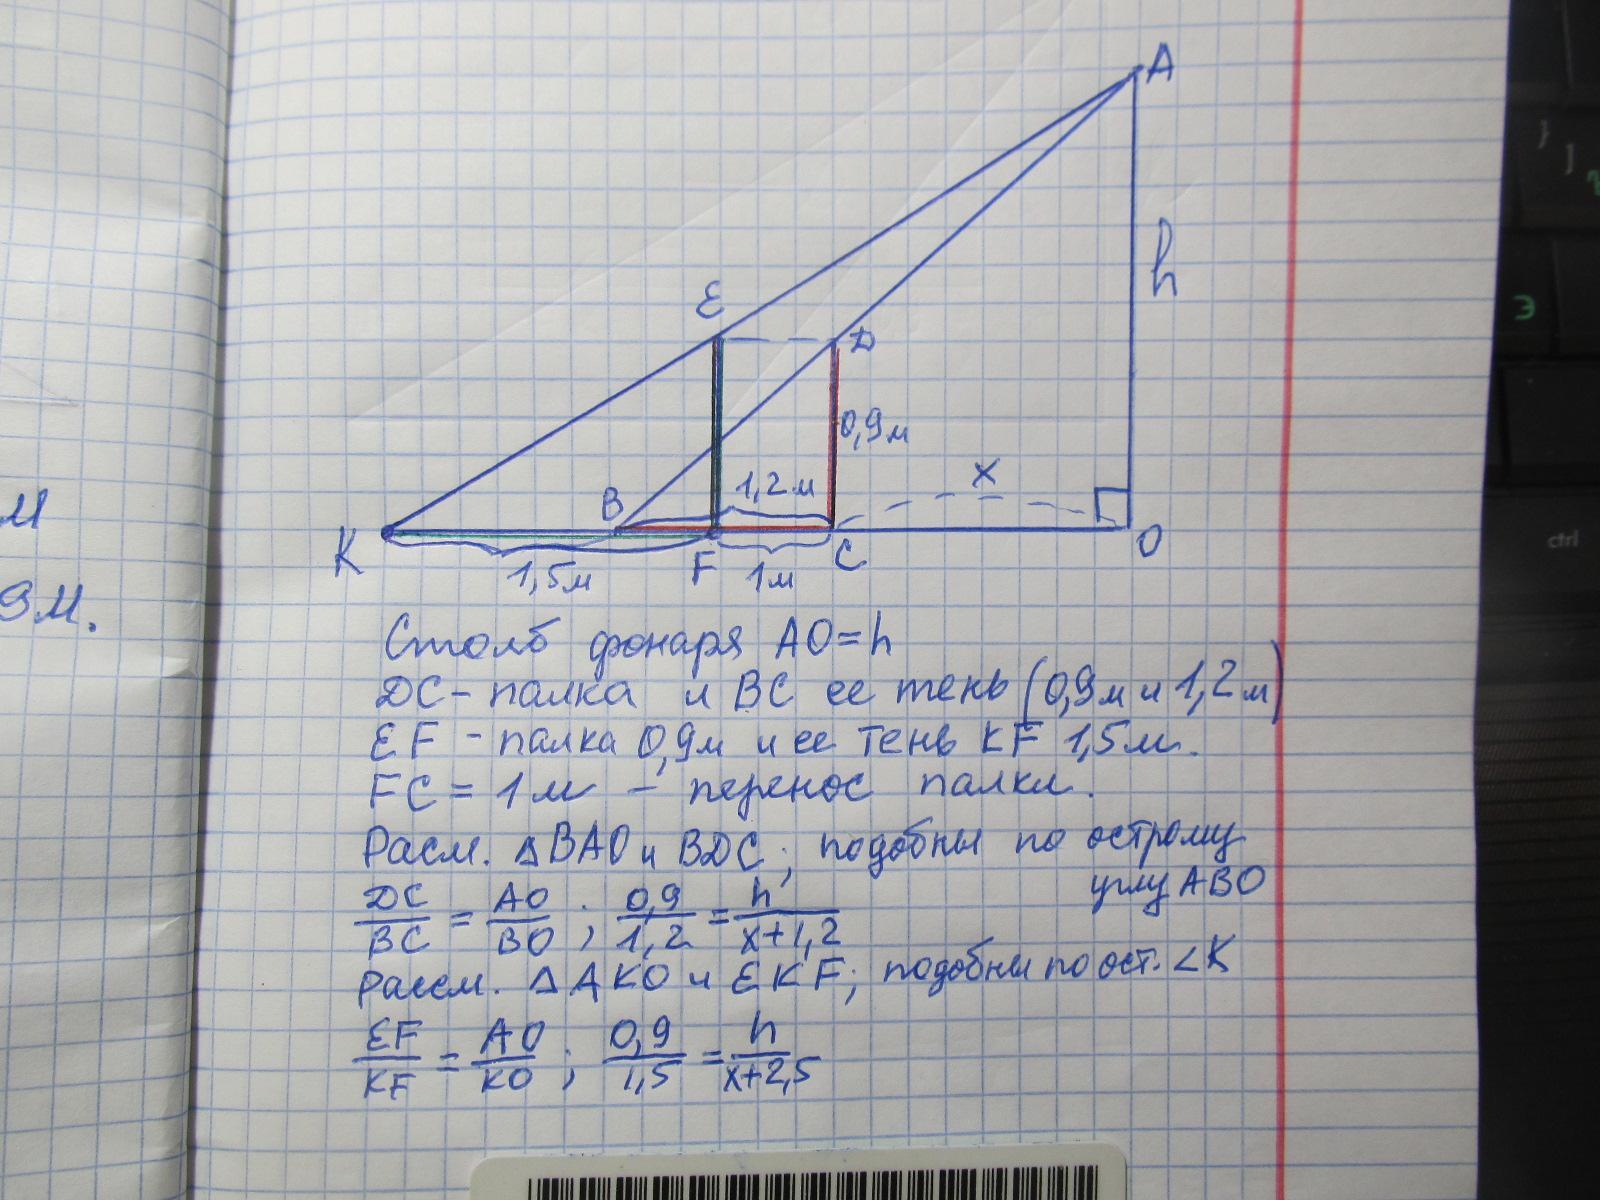 A
h
E
D
0,9м
x
B
1,2м
K
1,5м
F
1м
C
O
м
9м.
Столб фонаря AO=h
DC- палка и BC ее тень (0,9м и 1,2м)
EF - палка 0,9м и ее тень KF 1,5м.
FC = 1м - перенос палки.
Расм. ΔBAO и BDC; подобны по острому
углу ABO
DC/BC = AO/BO ; 0,9/1,2 = h/x+1,2
Рассм. ΔAKO и EKF; подобны по ост. ∠K
EF/KF = AO/KO ; 0,9/1,5 = h/x+2,5
}
]
Э
ctrl